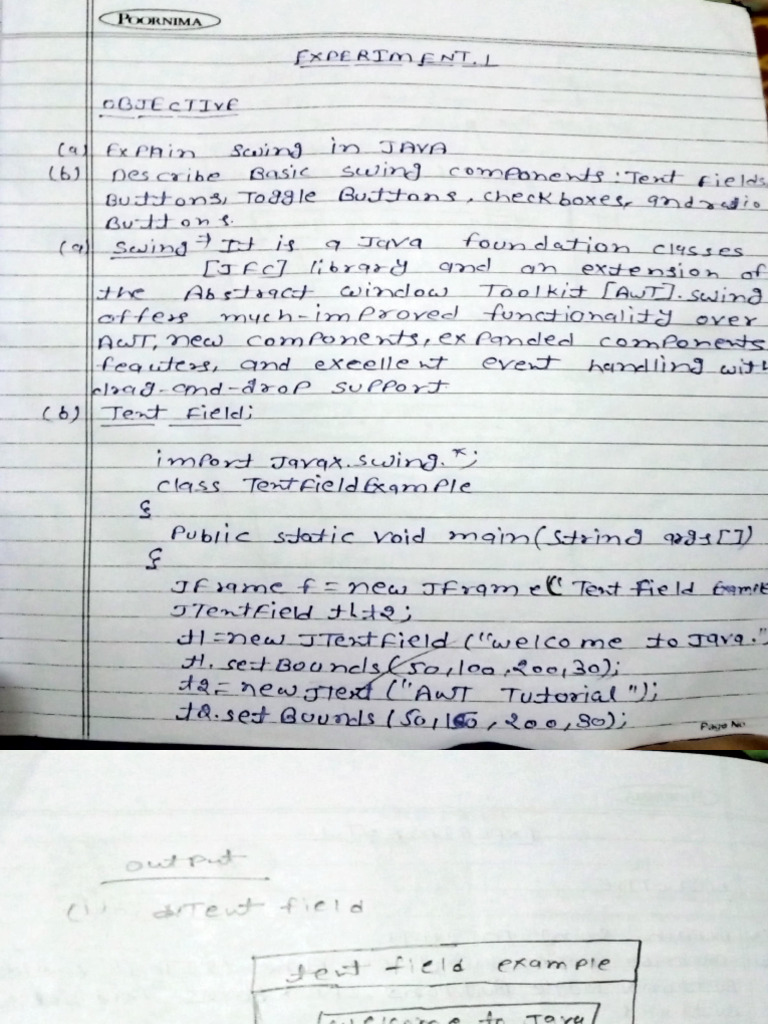 POORNIMA
EXPERIMENT.1
OBJECTIVE
(a) Expain swing in JAVA
(b) Describe Basic swing components: Text fields,
Buttons, Toggle Buttons, checkboxes, and radio
Buttons.
(a) Swing → It is a Java foundation classes
[JFC] library and an extension of
the Abstract window Toolkit [AWT]. swing
offers much-improved functionality over
AWT, new components, expanded components
feauters, and excellent event handling with
drag-and-drop support
(b) Text Field:
import Javax.swing.*;
class TextfieldExample
{
Public static void main(String args[])
{
JFrame f = new JFrame("Text field
JTextField t1,t2;
t1=new JTextfield ("welcome to Java."
t1.setBounds(50,100,200,30);
t2= new JText ("AWT Tutorial");
t2.set Bounds (50,150,200,30);
Page No
output
(1) Text field
Text field example
welcome to Java